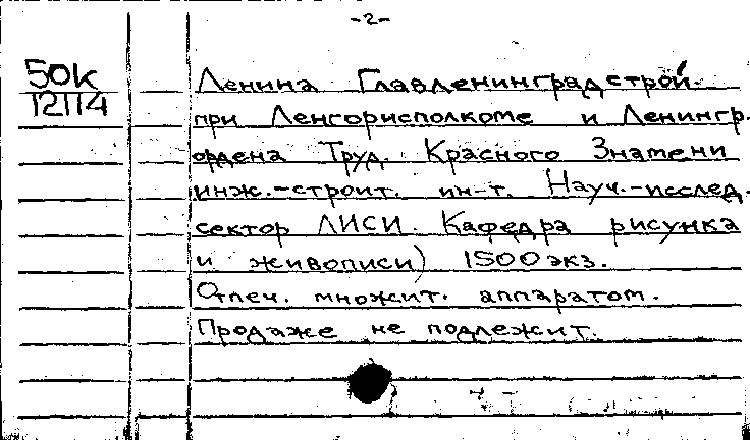 -2-
50к
12114
Ленина Главленинградстрой
при Ленгорисполкоме и Ленингр.
ордена Труд. Красного Знамени
инж.-строит. ин-т. Науч.-исслед.
сектор ЛИСИ. Кафедра рисунка
и живописи) 1500 экз.
Отпеч. множит. аппаратом.
Продаже не подлежит.